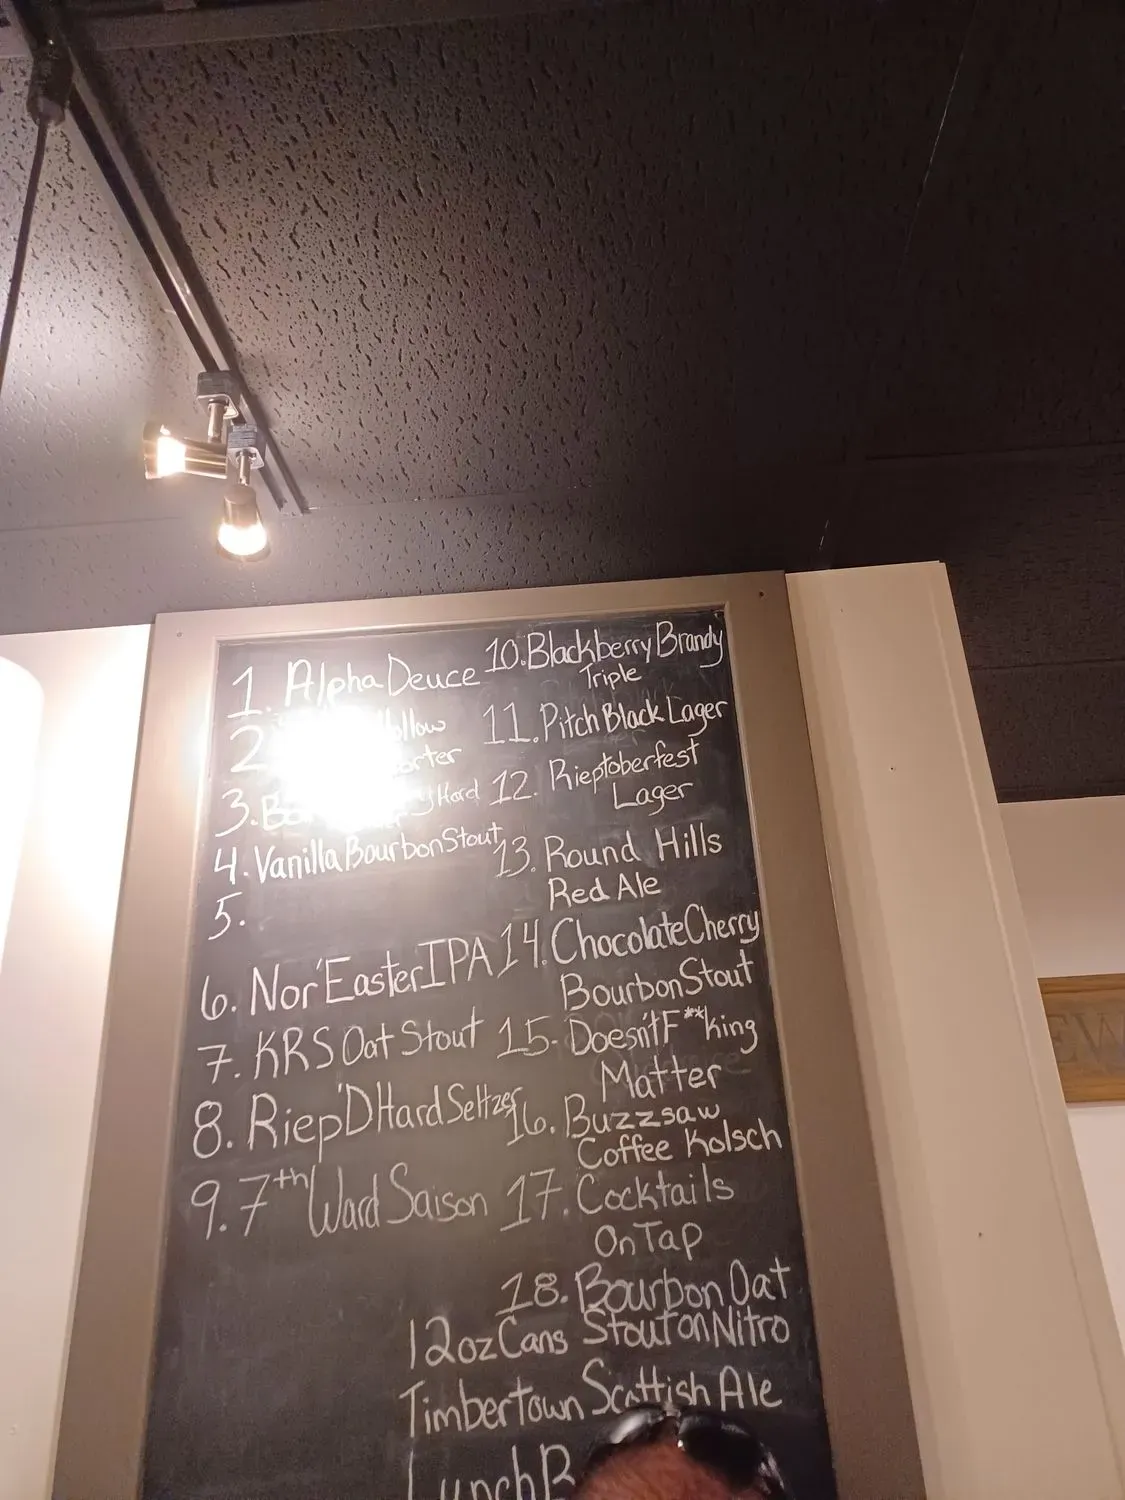 1. Alpha Deuce
2
3.
Hard
4. Vanilla Bourbon Stout
5.
6. Nor'Easter IPA
7. KRS Oat Stout
8. Riep'D Hard Seltzer
9. 7th Ward Saison
10. Blackberry Brandy
Triple
11. Pitch Black Lager
12. Rieptoberfest
Lager
13. Round Hills
Red Ale
14. Chocolate Cherry
Bourbon Stout
15. Doesn't F**king
Matter
16. Buzzsaw
Coffee Kolsch
17. Cocktails
On Tap
18. Bourbon Oat
Stout on Nitro
12oz Cans
Timbertown Scottish Ale
Lunch